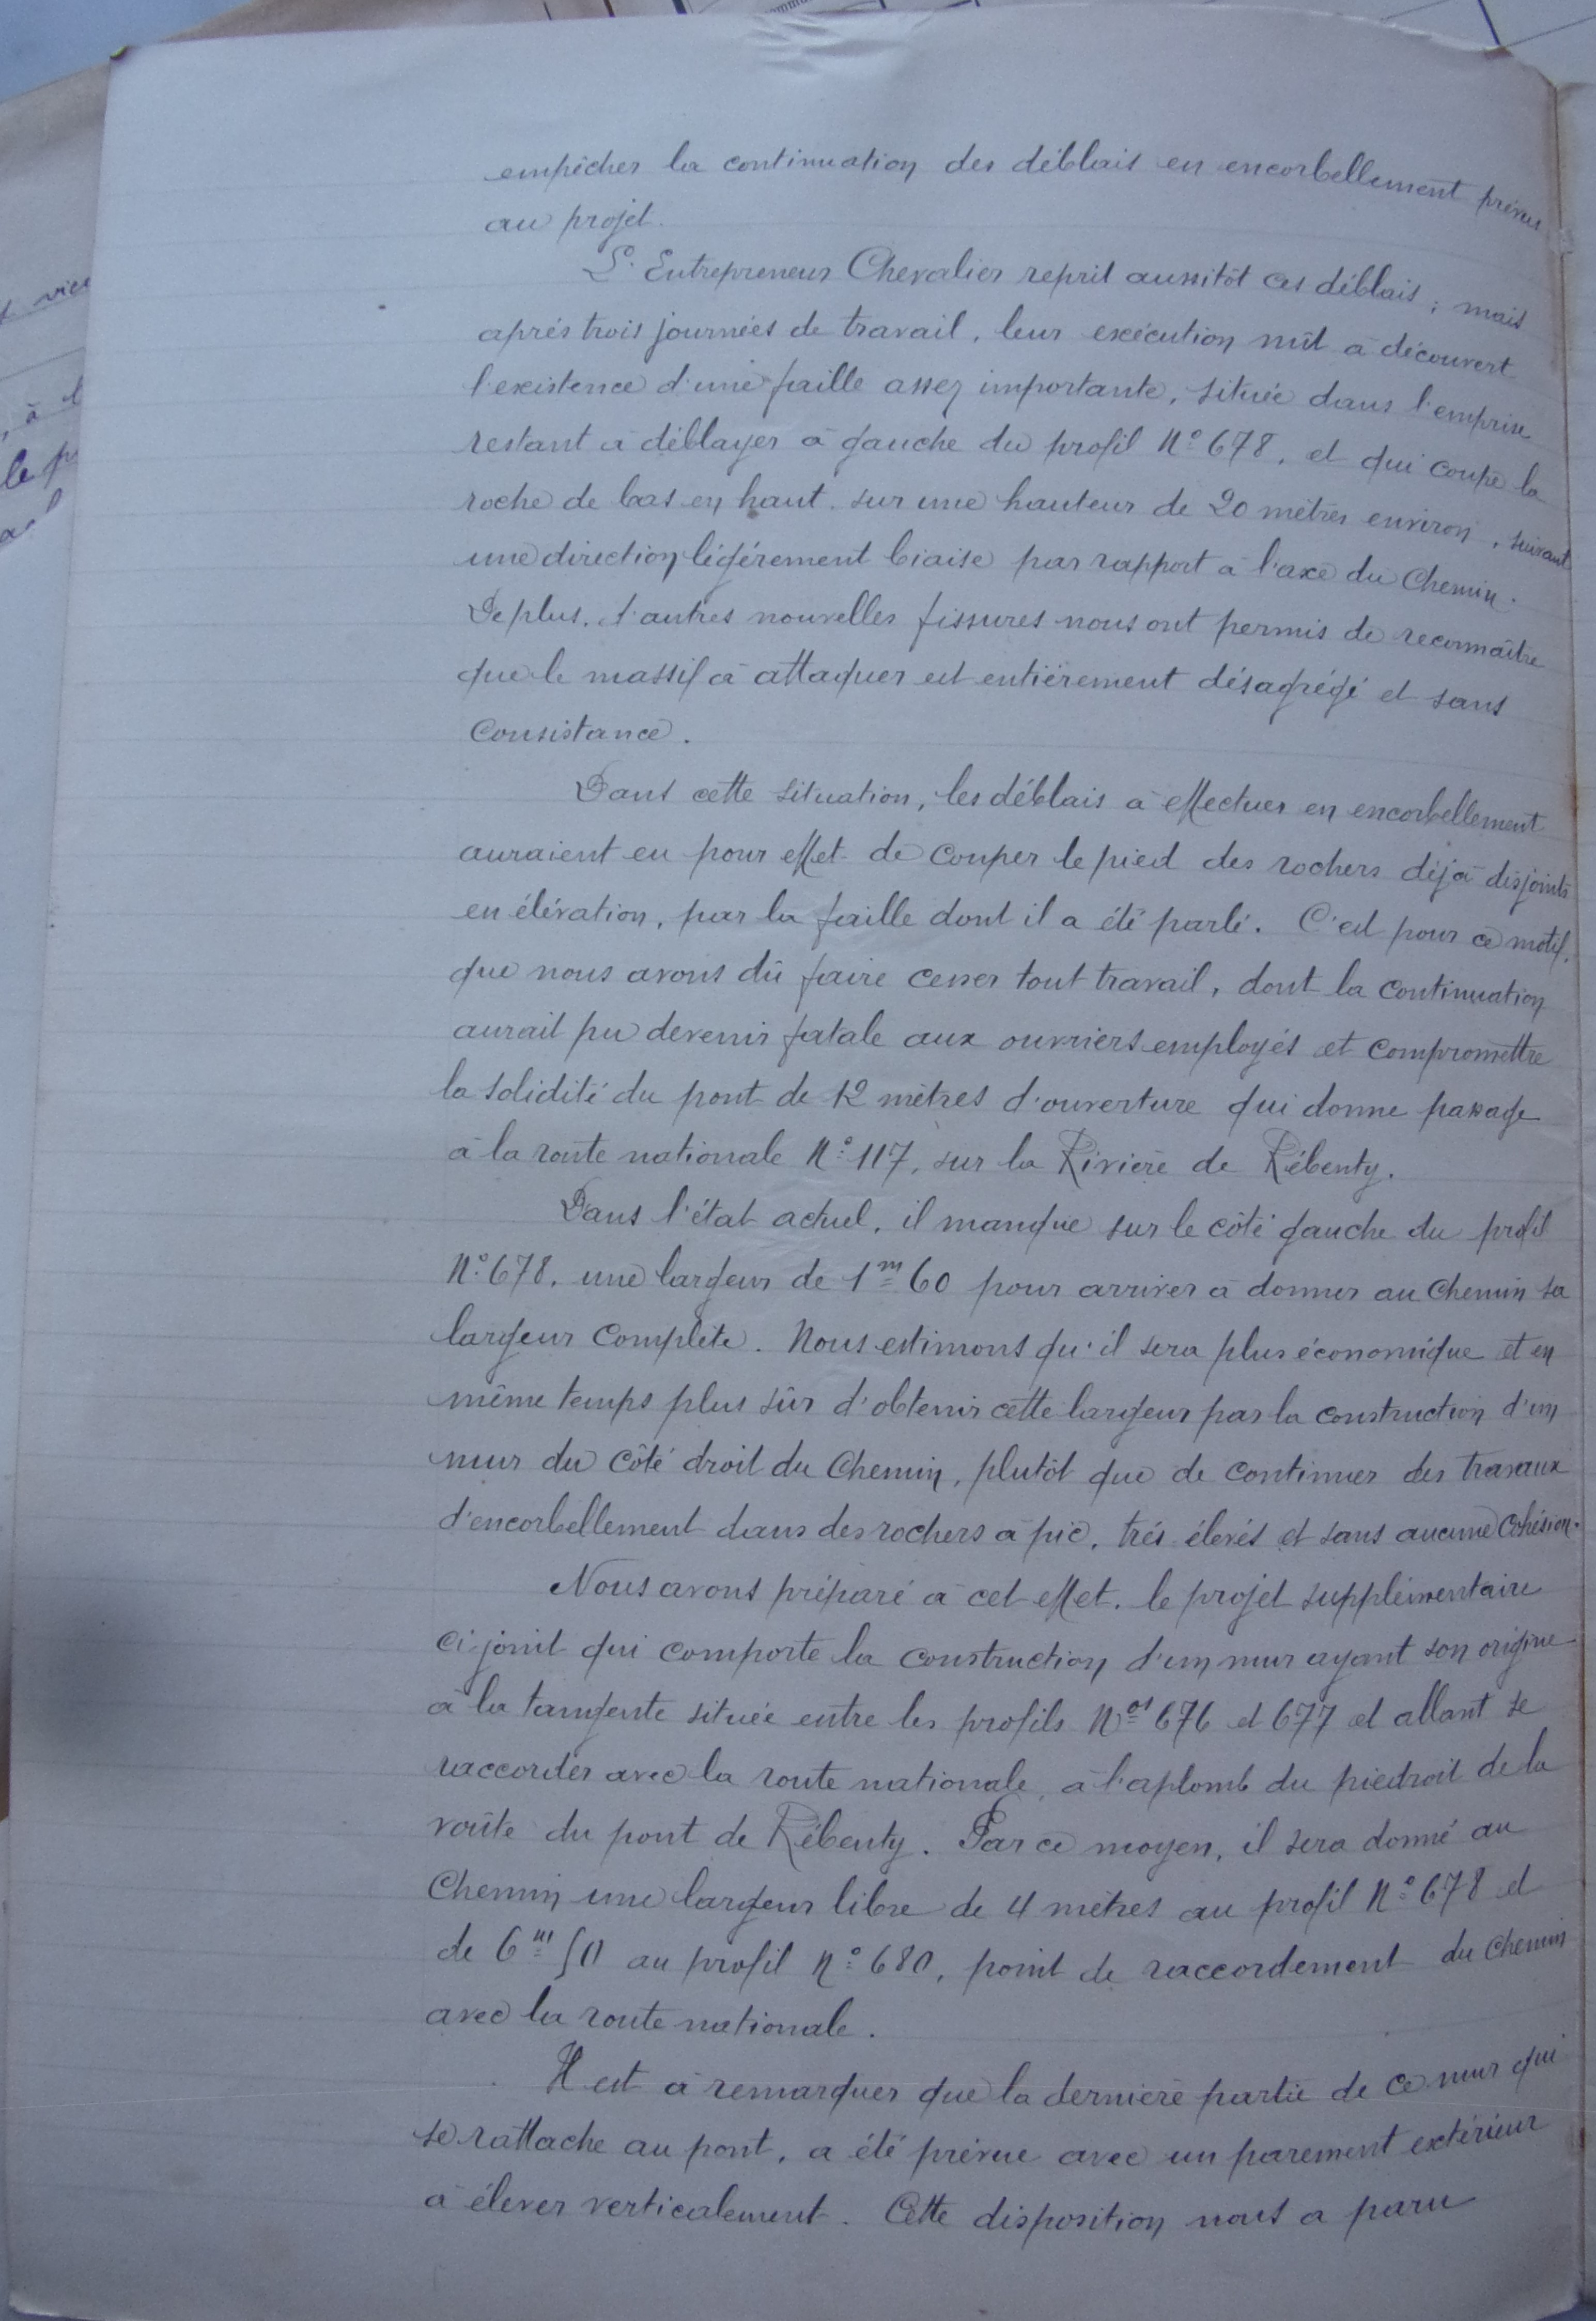 empêcher la continuation des déblais en encorbellement prévus
au projet.
L'Entrepreneur Chevalier reprit aussitôt ces déblais ; mais
après trois journées de travail, leur exécution mit à découvert
l'existence d'une faille assez importante, située dans l'emprise
restant à déblayer à gauche du profil N° 678, et qui coupe la
roche de bas en haut sur une hauteur de 20 mètres environ, suivant
une direction légèrement biaise par rapport à l'axe du Chemin.
De plus, d'autres nouvelles fissures nous ont permis de reconnaître
que le massif à attaquer est entièrement désagrégé et sans
consistance.
Dans cette situation, les déblais à effectuer en encorbellement
auraient eu pour effet de couper le pied des rochers déjà disjoints
en élévation, par la faille dont il a été parlé. C'est pour ce motif,
que nous avons dû faire cesser tout travail, dont la continuation
aurait pu devenir fatale aux ouvriers employés et compromettre
la solidité du pont de 12 mètres d'ouverture qui donne passage
à la route nationale N° 117, sur la Rivière de Rébenty.
Dans l'état actuel, il manque sur le côté gauche du profil
N° 678, une largeur de 1m 60 pour arriver à donner au Chemin sa
largeur complète. Nous estimons qu'il sera plus économique et en
même temps plus sûr d'obtenir cette largeur par la construction d'un
mur du côté droit du Chemin, plutôt que de continuer des travaux
d'encorbellement dans des rochers à pic, très élevés et sans aucune cohésion.
Nous avons préparé à cet effet, le projet supplémentaire
ci-joint qui comporte la construction d'un mur ayant son origine
à la tangente située entre les profils Nos 676 et 677 et allant se
raccorder avec la route nationale, à l'aplomb du piedroit de la
voûte du pont de Rébenty. Par ce moyen, il sera donné au
Chemin une largeur libre de 4 mètres au profil N° 678 et
de 6m 50 au profil N° 680, point de raccordement du Chemin
avec la route nationale.
Il est à remarquer que la dernière partie de ce mur qui
se rattache au pont, a été prévue avec un parement extérieur
à élever verticalement. Cette disposition nous a paru